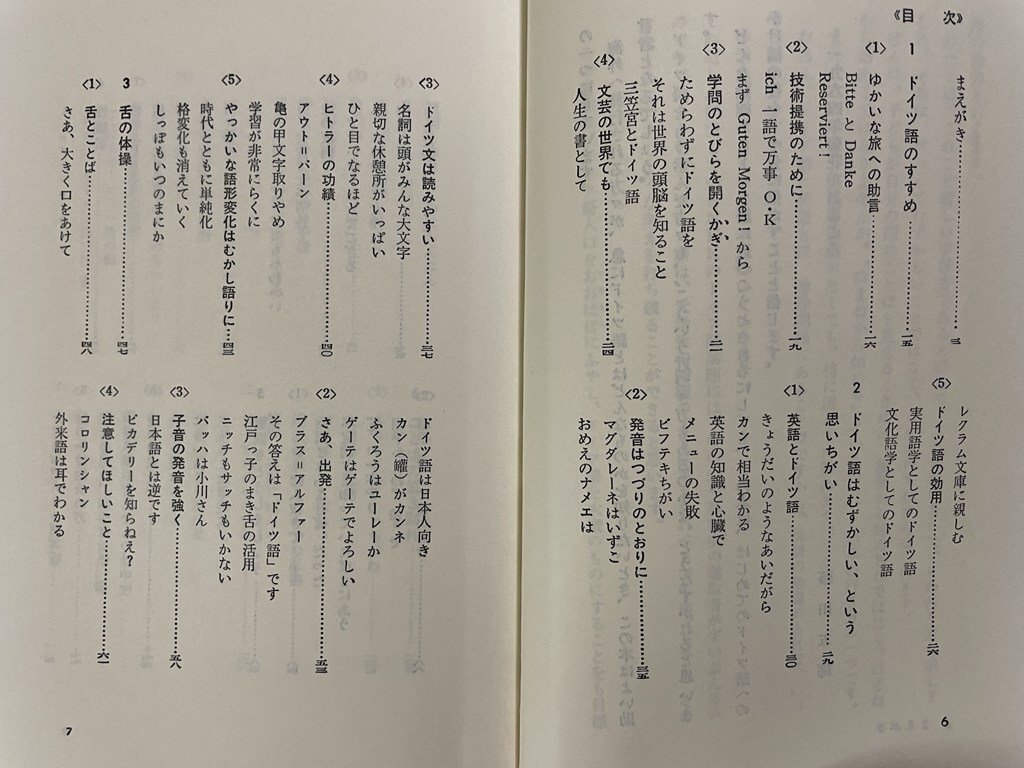 《目 次》
まえがき……………三
1 ドイツ語のすすめ……………一五
〈1〉 ゆかいな旅への助言……………一六
Bitte と Danke
Reserviert !
〈2〉 技術提携のために……………一九
ich 一語で万事 O・K
まず Guten Morgen! から
〈3〉 学問のとびらを開くかぎ……………二一
ためらわずにドイツ語を
それは世界の頭脳を知ること
三笠宮とドイツ語
〈4〉 文芸の世界でも……………二四
人生の書として
レクラム文庫に親しむ
〈5〉 ドイツ語の効用……………二六
実用語学としてのドイツ語
文化語学としてのドイツ語
2 ドイツ語はむずかしい、という
思いちがい……………二九
〈1〉 英語とドイツ語……………三〇
きょうだいのようなあいだがら
カンで相当わかる
英語の知識と心臓で
メニューの失敗
ビフテキちがい
〈2〉 発音はつづりのとおりに……………三五
マグダレーネはいずこ
おめえのナメエは
6
〈3〉 ドイツ文は読みやすい……………三七
名詞は頭がみんな大文字
親切な休憩所がいっぱい
ひと目でなるほど
〈4〉 ヒトラーの功績……………四〇
アウト＝バーン
亀の甲文字取りやめ
学習が非常にらくに
〈5〉 やっかいな語形変化はむかし語りに…四三
時代とともに単純化
格変化も消えていく
しっぽもいつのまにか
3 舌の体操……………四七
〈1〉 舌とことば……………四八
さあ、大きく口をあけて
ドイツ語は日本人向き
カン（罐）がカンネ
ふくろうはユーレーか
ゲーテはゲーテでよろしい
〈2〉 さあ、出発……………五三
プラス＝アルファー
その答えは「ドイツ語」です
江戸っ子のまき舌の活用
ニッチもサッチもいかない
バッハは小川さん
〈3〉 子音の発音を強く……………五八
日本語とは逆です
ピカデリーを知らねえ？
〈4〉 注意してほしいこと……………六一
コロリンシャン
外来語は耳でわかる
7